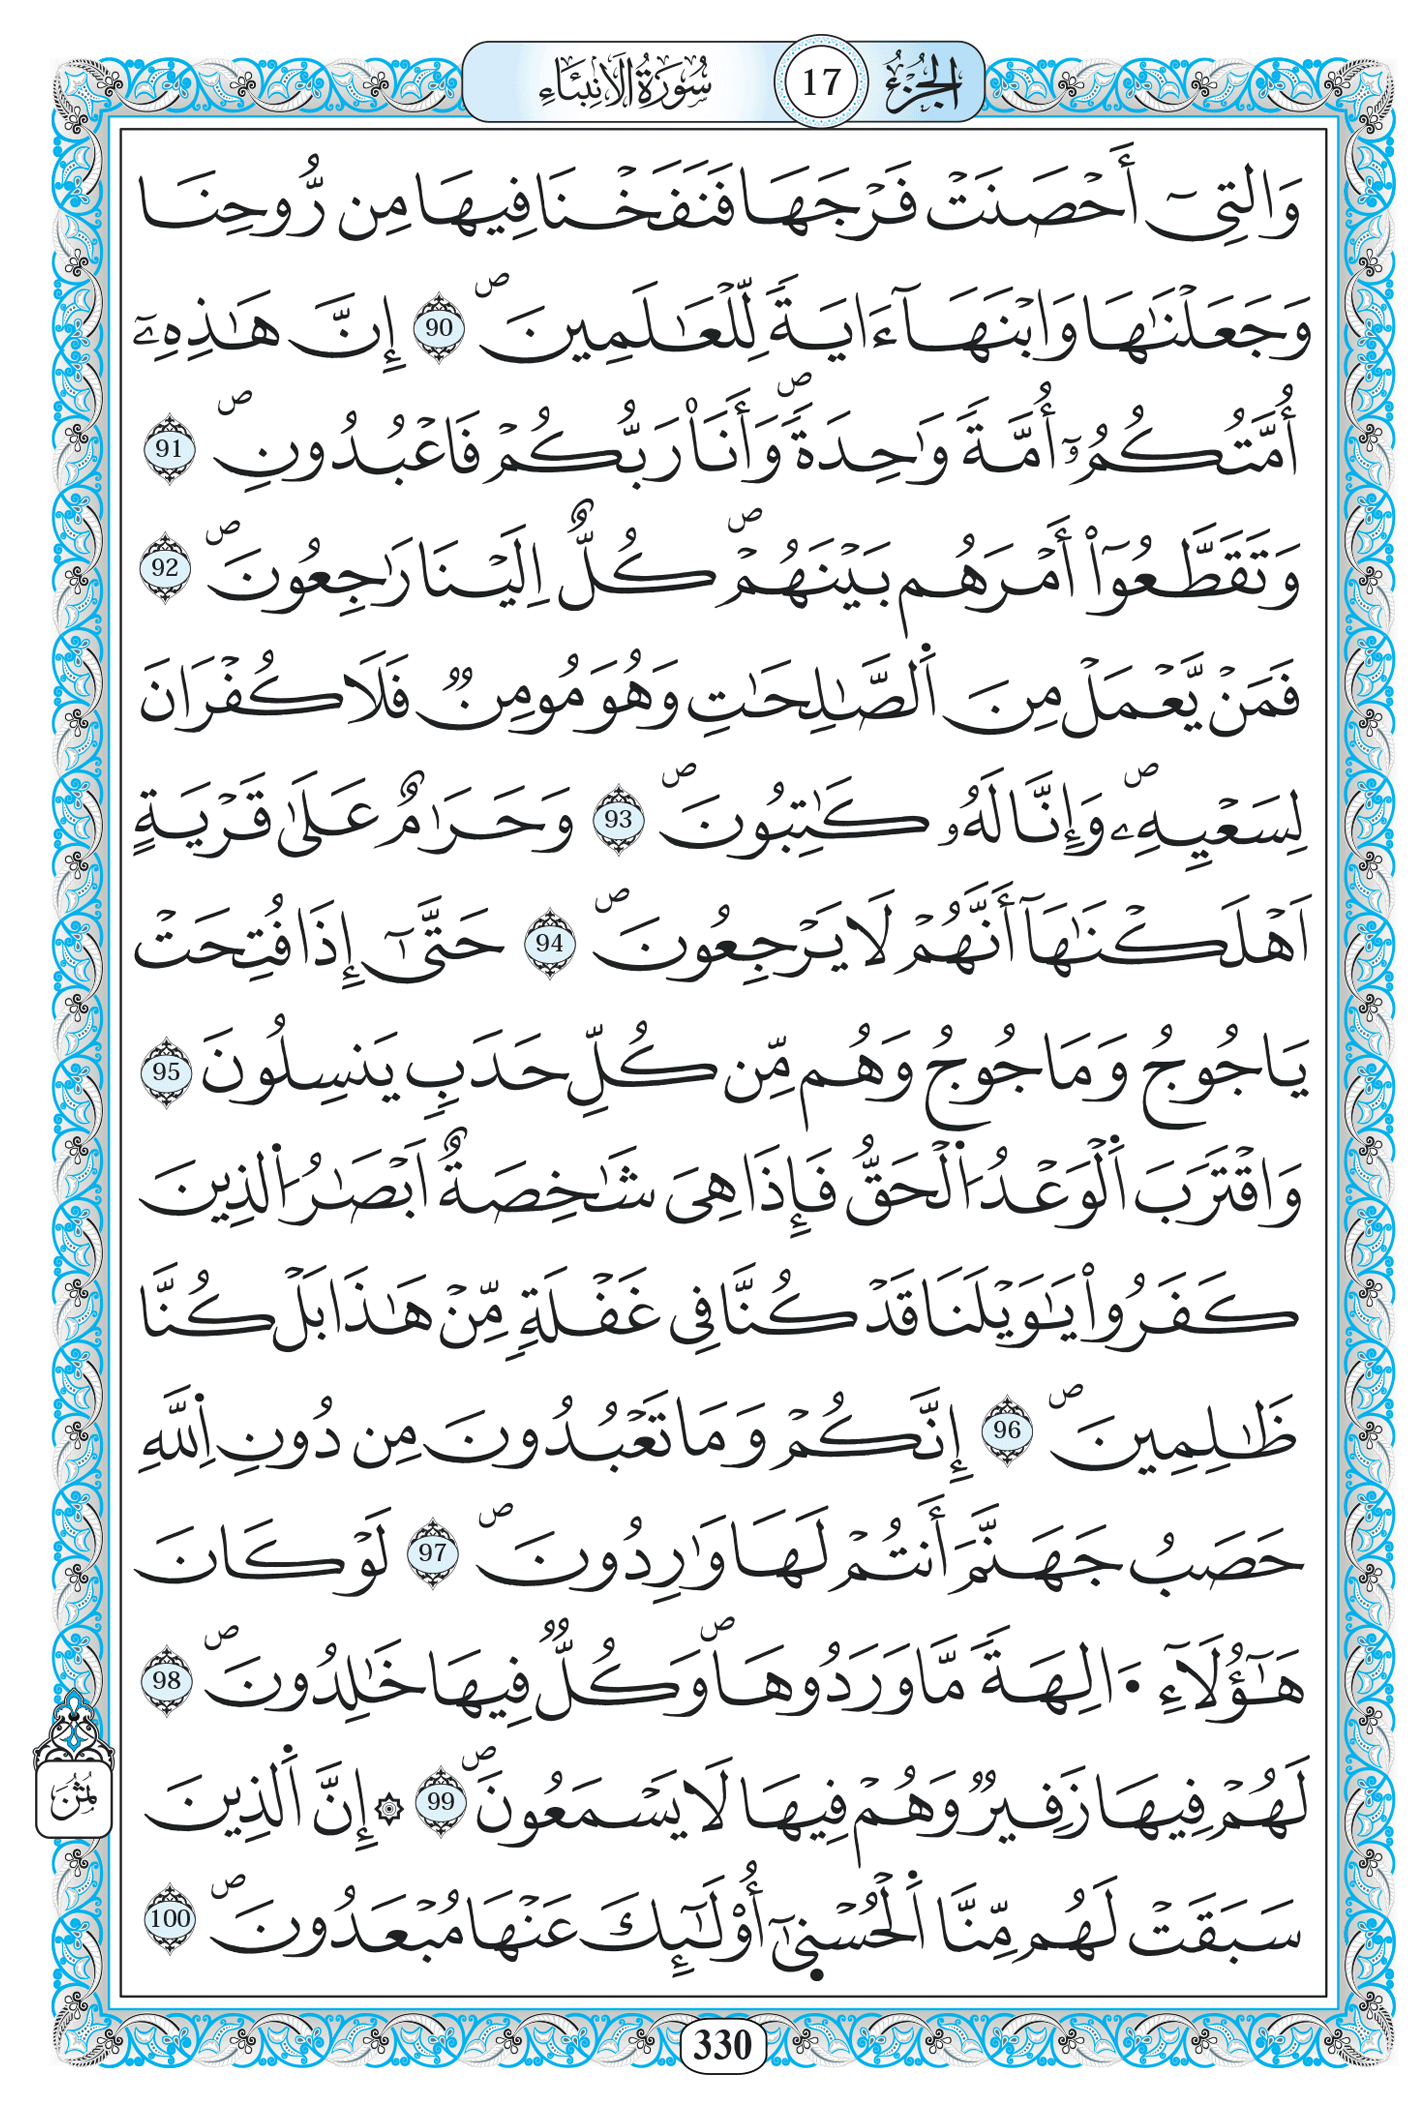 الجزء 17 سورة الانبئاء
وَالتِےٓ أَحْصَنَتْ فَرْجَهَا فَنَفَخْنَا فِيهَا مِن رُّوحِنَا
وَجَعَلْنَٰهَا وَابْنَهَآ ءَايَةٗ لِّلْعَٰلَمِينَۖ 90 إِنَّ هَٰذِهِۦٓ
أُمَّتُكُمُۥٓ أُمَّةٗ وَٰحِدَةٗۖ وَأَنَا۠ رَبُّكُمْ فَاعْبُدُونِۖ 91
وَتَقَطَّعُوٓاْ أَمْرَهُم بَيْنَهُمْۖ كُلٌّ اِلَيْنَا رَٰجِعُونَۖ 92
فَمَنْ يَّعْمَلْ مِنَ اَلصَّٰلِحَٰتِ وَهُوَ مُومِنٞ فَلَا كُفْرَانَ
لِسَعْيِهِۦۖ وَإِنَّا لَهُۥ كَٰتِبُونَۖ 93 وَحَرَٰمٌ عَلَىٰ قَرْيَةٍ
اَهْلَكْنَٰهَآ أَنَّهُمْ لَا يَرْجِعُونَۖ 94 حَتَّىٰٓ إِذَا فُتِحَتْ
يَاجُوجُ وَمَاجُوجُ وَهُم مِّن كُلِّ حَدَبٖ يَنسِلُونَ 95
وَاقْتَرَبَ اَلْوَعْدُ اُلْحَقُّ فَإِذَا هِيَ شَٰخِصَةٌ اَبْصَٰرُ اُلذِينَ
كَفَرُواْ يَٰوَيْلَنَا قَدْ كُنَّا فِي غَفْلَةٖ مِّنْ هَٰذَا بَلْ كُنَّا
ظَٰلِمِينَۖ 96 إِنَّكُمْ وَمَا تَعْبُدُونَ مِن دُونِ اِللَّهِ
حَصَبُ جَهَنَّمَ أَنتُمْ لَهَا وَٰرِدُونَۖ 97 لَوْ كَانَ
هَٰٓؤُلَآءِ ا۬لِهَةٗ مَّا وَرَدُوهَاۖ وَكُلّٞ فِيهَا خَٰلِدُونَۖ 98
لَهُمْ فِيهَا زَفِيرٞ وَهُمْ فِيهَا لَا يَسْمَعُونَۖ 99 ۞ إِنَّ اَلذِينَ
سَبَقَتْ لَهُم مِّنَّا اَلْحُسْن۪ىٰٓ أُوْلَٰٓئِكَ عَنْهَا مُبْعَدُونَۖ 100
ثمن
330